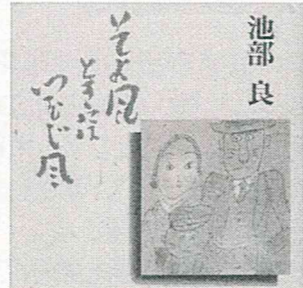 池部 良
そよ風
ときには
つむじ風